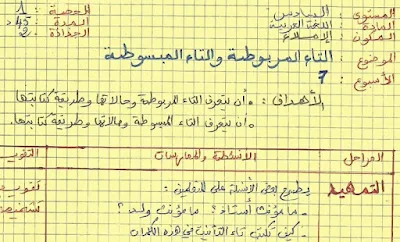 المستوى : السادس الحصة : 1
المادة : اللغة العربية المدة : 45
المكون : الإملاء الجذاذة : 2
الموضوع : التاء المربوطة والتاء المبسوطة
الأسبوع : 7
الأهداف : • أن يتعرف التاء المربوطة وحالاتها وطريقة كتابتها
• أن يتعرف التاء المبسوطة وحالاتها وطريقة كتابتها.
المراحل الأنشطة والممارسات التقويم
التمهيد يطرح بعض الأسئلة على المتعلمين :
- ما مؤنث أستاذ؟ ما مؤنث ولد؟
- كيف تكتب تاء التأنيث في هذه الكلمات